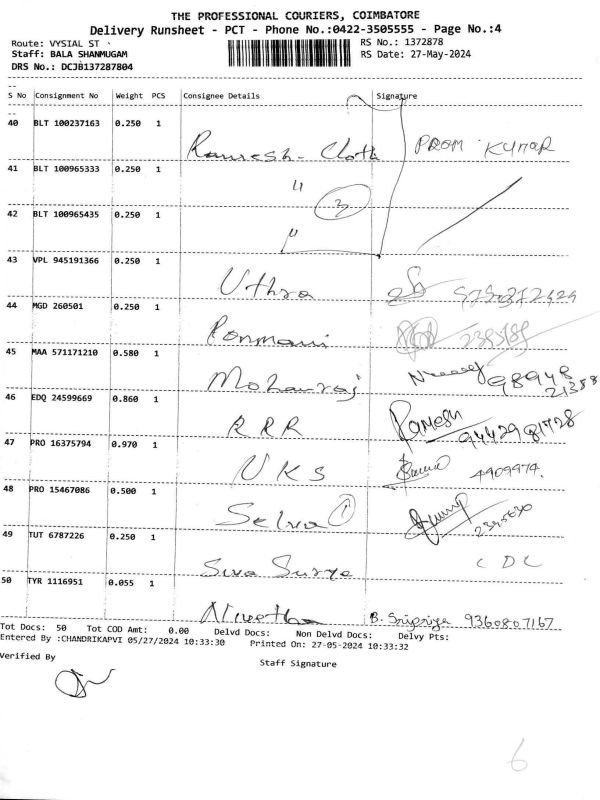 THE PROFESSIONAL COURIERS, COIMBATORE
Delivery Runsheet - PCT - Phone No.:0422-3505555 - Page No.:4
Route: VYSIAL ST
RS No.: 1372878
Staff: BALA SHANMUGAM
RS Date: 27-May-2024
DRS No.: DCJB137287804
S No Consignment No Weight PCS Consignee Details Signature
40 BLT 100237163 0.250 1
Ramesh Cloth PREM KUMAR
41 BLT 100965333 0.250 1
"
3
42 BLT 100965435 0.250 1
"
43 VPL 945191366 0.250 1
Uthra
44 MGD 260501 0.250 1
Ponmani
45 MAA 571171210 0.580 1
Mohanraj 98948
21358
46 EDQ 24599669 0.860 1
RRR Ramesh 9442981728
47 PRO 16375794 0.970 1
UKS 4409474.
48 PRO 15467086 0.500 1
Selva 1
49 TUT 6787226 0.250 1
Siva Surya CDC
50 TYR 1116951 0.055 1
Nivetha B. Sripriya 9360807167
Tot Docs: 50 Tot COD Amt: 0.00 Delvd Docs: Non Delvd Docs: Delvy Pts:
Entered By :CHANDRIKAPVI 05/27/2024 10:33:30 Printed On: 27-05-2024 10:33:32
Verified By
Staff Signature
6